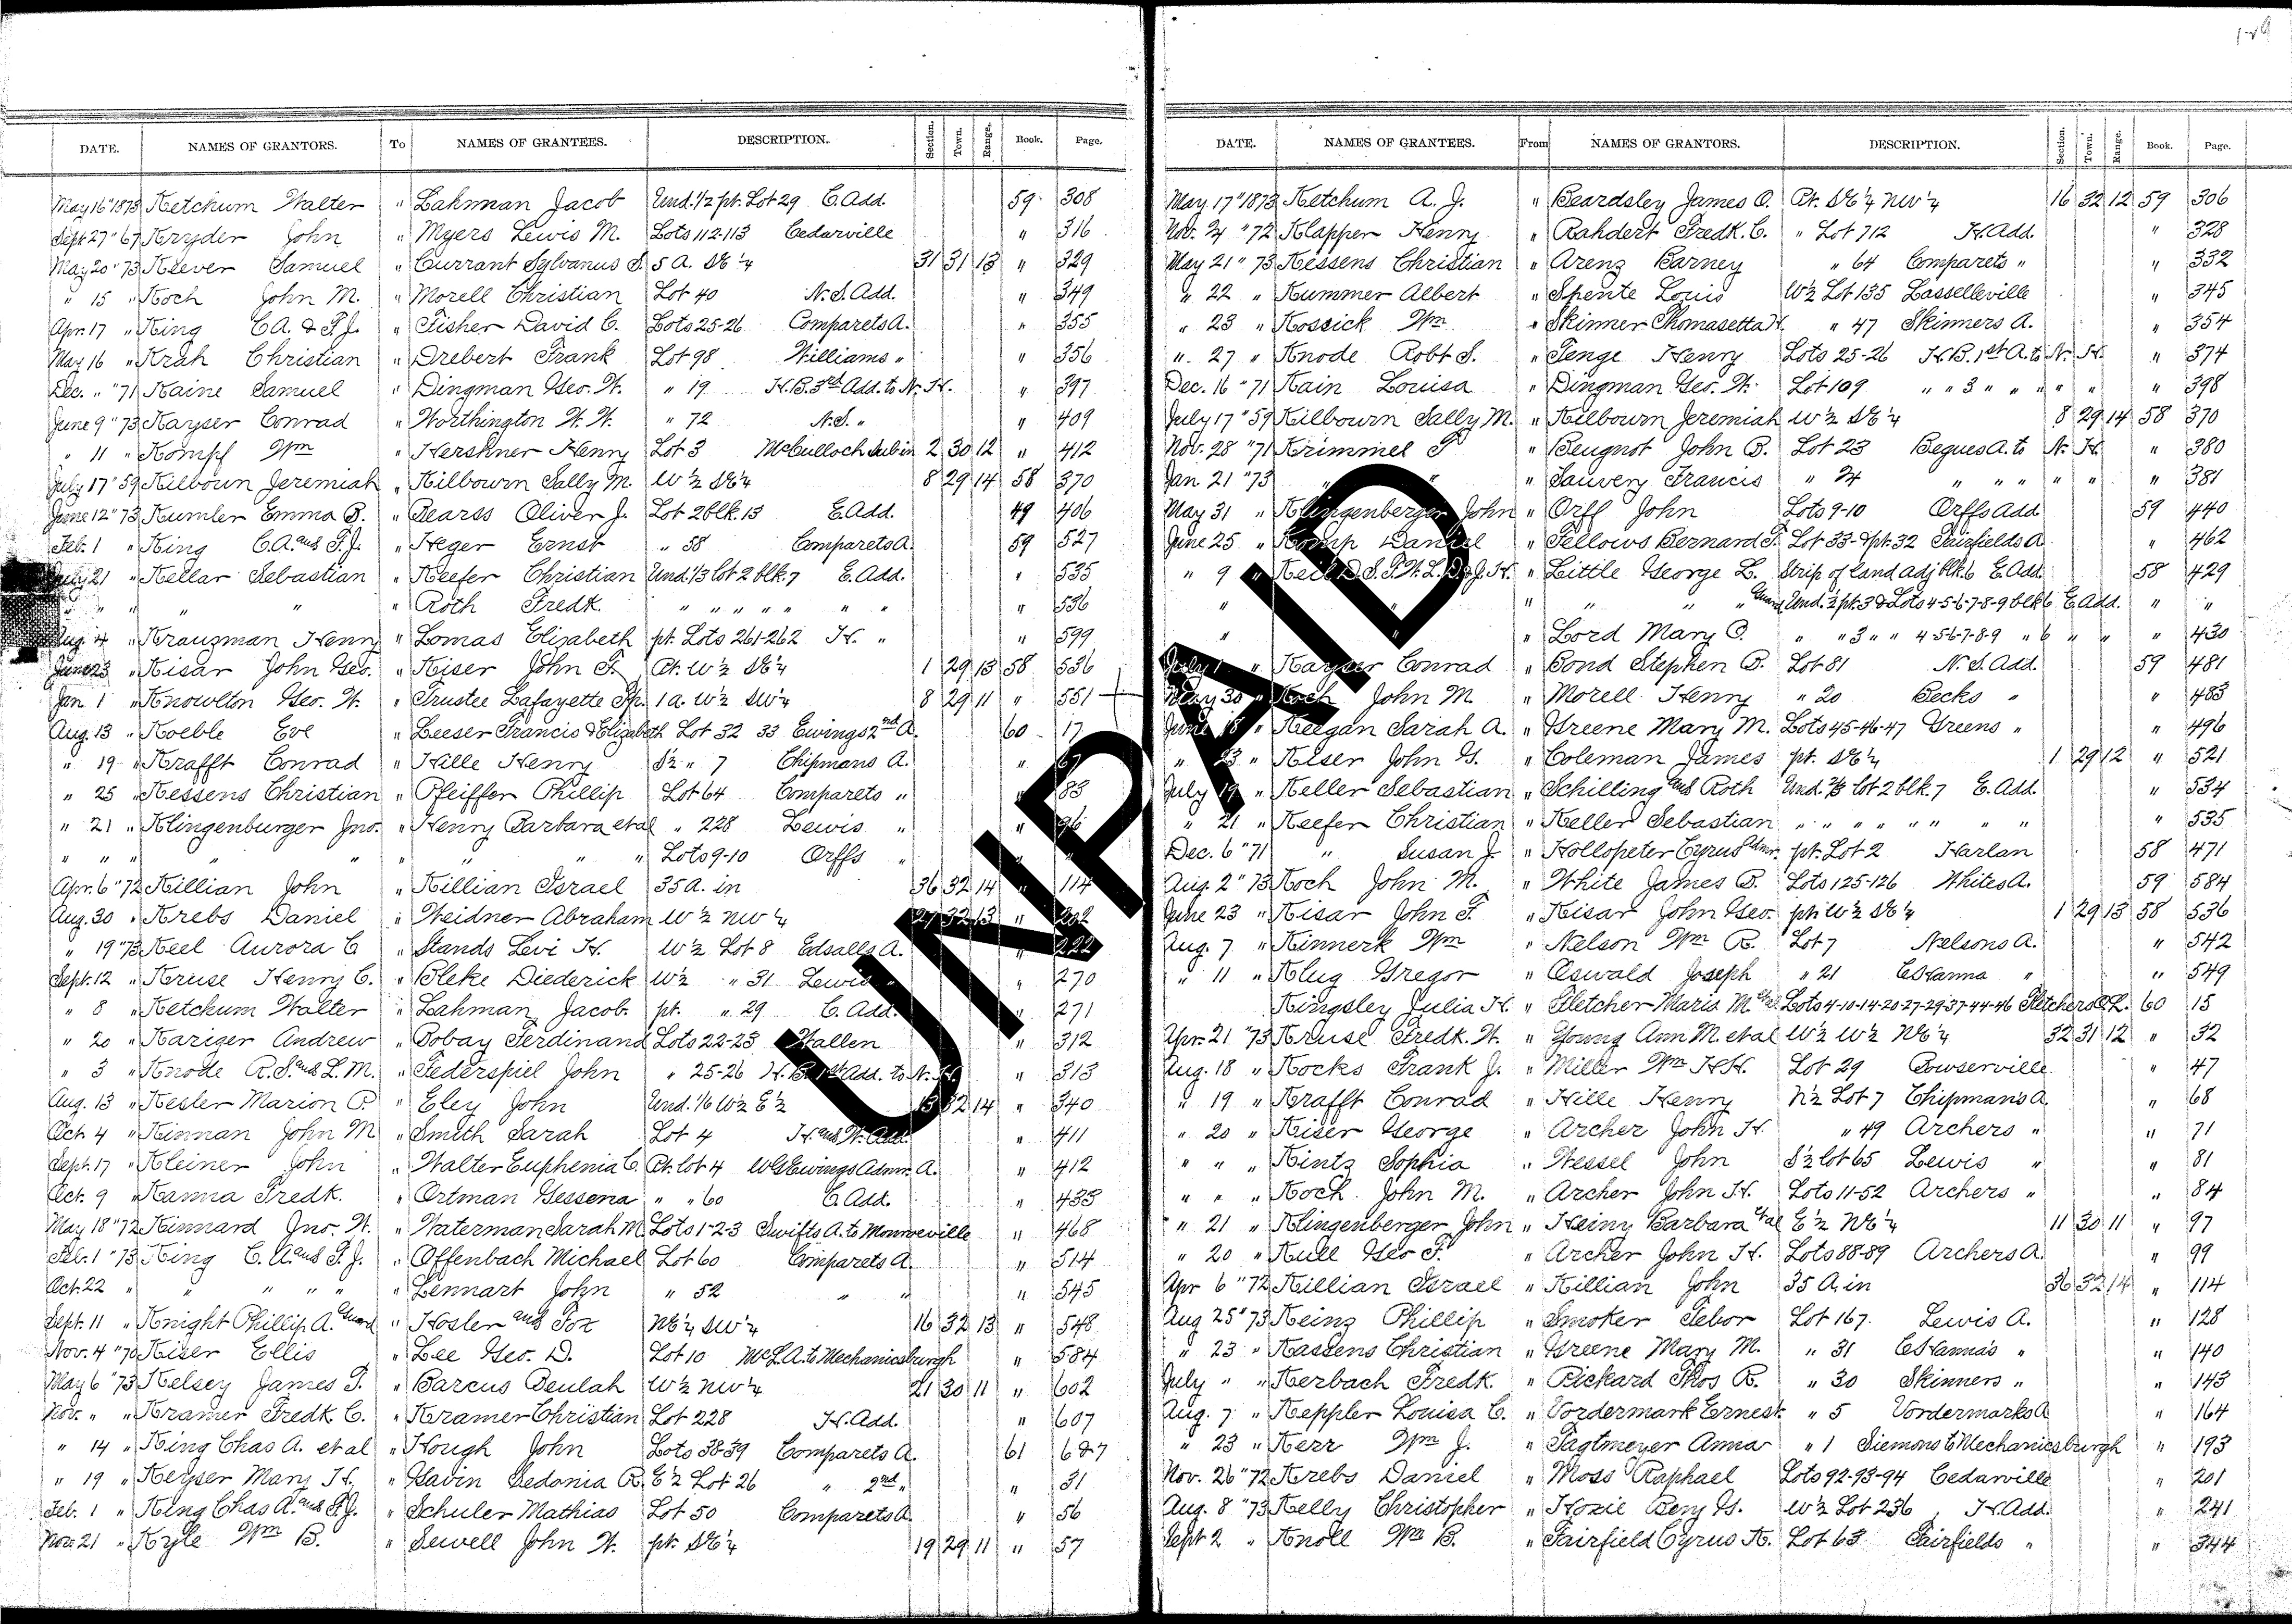 DATE. NAMES OF GRANTORS. To NAMES OF GRANTEES. DESCRIPTION. Section. Town. Range. Book. Page.
May 16 " 1873 Ketchum Walter " Lahman Jacob Und. 1/2 pt. Lot 29 C. Add. 59 308
Sept 27 " 67 Kryder John " Myers Lewis M. Lots 112-113 Cedarville " 316
May 20 " 73 Keever Samuel " Currant Sylvanus S. 5 A. SE 1/4 31 31 13 " 329
" 15 " Koch John M. " Morell Christian Lot 40 N. S. Add. " 349
Apr. 17 " King C A. & F. J. " Fisher David C. Lots 25-26 Comparets A. " 355
May 16 " Krah Christian " Drebert Frank Lot 98 Williams " " 356
Dec. " " 71 Kaine Samuel " Dingman Geo. W. " 19 H. B. 3rd Add. to N. H. " 397
June 9 " 73 Kayser Conrad " Worthington W. W. " 72 N. S. " " 409
" 11 " Kompf Wm " Hershner Henry Lot 3 McCulloch Sub in 2 30 12 " 412
July 17 " 59 Kilbourn Jeremiah " Kilbourn Sally M. W 1/2 SE 1/4 8 29 14 58 370
June 12 " 73 Kumler Emma B. " Pearss Oliver J. Lot 2 blk. 13 E. Add. 49 406
Feb. 1 " King C. A. and F. J. " Heger Ernst " 58 Comparets A. 59 527
July 21 " Kellar Sebastian " Keefer Christian Und. 1/3 lot 2 blk. 7 E. Add. " 535
" " " " " Roth Fredk. " " " " " " " " 536
Aug. 4 " Krauzman Henry " Lomas Elizabeth pt. Lots 261-262 H. " " 599
June 23 " Kisar John Geo. " Kiser John F. Pt. W 1/2 SE 1/4 1 29 13 58 536
Jan 1 " Knowlton Geo. W. " Trustee Lafayette Tp. 1 a. W 1/2 SW 1/4 8 29 11 " 551
Aug. 13 " Koeble Eve " Leeser Francis & Elizabeth Lot 32 33 Ewings 2nd A. 60 17
" 19 " Krafft Conrad " Hille Henry S 1/2 " 7 Chipmans A. " 67
" 25 " Kessens Christian " Pfeiffer Phillip Lot 64 Comparets " " 83
" 21 " Klingenburger Jno. " Henry Barbara et al " 228 Lewis " " 96
" " " " " " " " Lots 9-10 Orffs "
Apr. 6 " 72 Killian John " Killian Israel 35 A. in 36 32 14 " 114
Aug. 30 " Krebs Daniel " Weidner Abraham W 1/2 NW 1/4 27 32 13 " 202
" 19 " 73 Keel Aurora C " Stands Levi H. W 1/2 Lot 8 Edsalls A. " 222
Sept. 12 " Kruse Henry C. " Bleke Diederick W 1/2 " 31 Lewis " " 270
" 8 " Ketchum Walter " Lahman Jacob. pt. " 29 C. Add. " 271
" 20 " Kariger Andrew " Bobay Ferdinand Lots 22-23 Wallen " 312
" 3 " Knode R. S. and L. M. " Federspiel John " 25-26 H. B. 1st Add. to N. H. " 313
Aug. 13 " Kesler Marion P. " Eley John Und. 1/6 W 1/2 E 1/2 13 32 14 " 340
Oct. 4 " Kinnan John M " Smith Sarah Lot 4 H. and W. Add. " 411
Sept. 17 " Kleiner John " Walter Euphenia C. Pt. lot 4 W G Ewings Admr. A. " 412
Oct. 9 " Kanna Fredk. " Ortman Gessena " " 60 C. Add. " 433
May 18 " 72 Kinnard Jno. W. " Waterman Sarah M Lots 1-2-3 Swifts A. to Monroeville " 468
Feb. 1 " 73 King C. A. and F. J. " Offenbach Michael Lot 60 Comparets A. " 514
Oct. 22 " " " " " " Lennart John " 52 " " " 545
Sept. 11 " Knight Phillip A. Guard " Hosler and Fox NE 1/4 SW 1/4 16 32 13 " 548
Nov. 4 " 70 Kiser Ellis " Lee Geo. D. Lot 10 McL. A. to Mechanicsburgh " 584
May 6 " 73 Kelsey James T. " Barcus Beulah W 1/2 NW 1/4 21 30 11 " 602
Nov. " " Kramer Fredk. C. " Kramer Christian Lot 228 H. Add. " 607
" 14 " King Chas A. et al " Hough John Lots 38-39 Comparets A. 61 6 & 7
" 19 " Keyser Mary H. " Gavin Sedonia R. E 1/2 Lot 26 " 2nd " " 31
Feb. 1 " King Chas A. and F. J. " Schuler Mathias Lot 50 Comparets A " 56
Nov. 21 " Kyle Wm B. " Sewell John W. pt. SE 1/4 19 29 11 " 57
DATE. NAMES OF GRANTEES. From NAMES OF GRANTORS. DESCRIPTION. Section. Town. Range. Book. Page.
May 17 " 1873 Ketchum A. J. " Beardsley James O. Pt. SE 1/4 NW 1/4 16 32 12 59 306
Nov. 24 " 72 Klapper Henry " Rahdert Fredk. C. " Lot 712 H. Add. " 328
May 21 " 73 Kessens Christian " Arenz Barney " 64 Comparets " " 332
" 22 " Kummer Albert " Spente Louis W 1/2 Lot 135 Lasselleville " 345
" 23 " Kossick Wm " Skinner Thomasetta H. " 47 Skinners A. " 354
" 27 " Knode Robt S. " Tenge Henry Lots 25-26 H. B. 1st A. to N. H. " 374
Dec. 16 " 71 Kain Louisa " Dingman Geo. W. Lot 109 " " 3 " " " " " " 398
July 17 " 59 Kilbourn Sally M. " Kilbourn Jeremiah W 1/2 SE 1/4 8 29 14 58 370
Nov. 28 " 71 Krimmel F " Beugnot John B. Lot 23 Begues A. to N. H. " 380
Jan. 21 " 73 " " " Sauvery Francis " 24 " " " " " " 381
May 31 " Klingenberger John " Orff John Lots 9-10 Orffs Add 59 440
June 25 " Komp Daniel " Fellows Bernard F. Lot 33 & pt. 32 Fairfields A " 462
" 9 " Keil D. S. F. W. L. D. & J. H. " Little George L. Strip of land adj blk. 6 E. Add. 58 429
" " " " " " Guard Und. 1/2 pt. 3 & Lots 4-5-6-7-8-9 blk 6 E. Add. " "
" " " Lord Mary O. " " 3 " " 4-5-6-7-8-9 " 6 " " " 430
July 1 " Kayser Conrad " Bond Stephen B. Lot 81 N. S. Add. 59 481
May 30 " Koch John M. " Morell Henry " 20 Becks " " 483
June 18 " Keegan Sarah A. " Greene Mary M. Lots 45-46-47 Greens " " 496
" 23 " Kiser John G. " Coleman James pt. SE 1/4 1 29 12 " 521
July 19 " Keller Sebastian " Schilling and Roth Und. 2/3 lot 2 blk. 7 E. Add. " 534
" 21 " Keefer Christian " Keller Sebastian " " " " " " " " " 535
Dec. 6 " 71 " Susan J. " Hollopeter Cyrus Admr. pt. Lot 2 Harlan 58 471
Aug. 2 " 73 Koch John M. " White James B. Lots 125-126 Whites A. 59 584
June 23 " Kisar John F. " Kisar John Geo. pt. W 1/2 SE 1/4 1 29 13 58 536
Aug. 7 " Kinnerk Wm " Nelson Wm R. Lot 7 Nelsons A. " 542
" 11 " Klug Gregor " Oswald Joseph " 21 C Hanna " " 549
Kingsley Julia H. " Fletcher Maria M. et al Lots 4-10-14-20-27-29-37-44-46 Fletchers O. L. 60 15
Apr. 21 " 73 Kruse Fredk. W. " Young Ann M. et al W 1/2 W 1/2 NE 1/4 32 31 12 " 32
Aug. 18 " Kocks Frank J. " Miller Wm H. H. Lot 29 Bowserville " 47
" 19 " Krafft Conrad " Hille Henry N 1/2 Lot 7 Chipmans A. " 68
" 20 " Keiser George " Archer John H. " 49 Archers " " 71
" " " Kintz Sophia " Wessel John S 1/2 lot 65 Lewis " " 81
" " " Koch John M. " Archer John H. Lots 11-52 Archers " " 84
" 21 " Klingenberger John " Heiny Barbara et al E 1/2 NE 1/4 11 30 11 " 97
" 20 " Kull Geo F. " Archer John H. Lots 88-89 Archers A. " 99
Apr 6 " 72 Killian Israel " Killian John 35 A. in 36 32 14 " 114
Aug 25 " 73 Keinz Phillip " Smoker Tebor Lot 167. Lewis A. " 128
" 23 " Kastens Christian " Greene Mary M. " 31 C Hanna's " " 140
July " " Kerbach Fredk. " Pickard Thos R. " 30 Skinners " " 143
Aug. 7 " Keppler Louisa C. " Vordermark Ernest " 5 Vordermarks A " 164
" 23 " Kerr Wm J. " Tagtmeyer Anna " 1 Siemons to Mechanicsburgh " 193
Nov. 26 " 72 Krebs Daniel " Moss Raphael Lots 92-93-94 Cedarville " 201
Aug. 8 " 73 Kelly Christopher " Hozie Benj G. W 1/2 Lot 236 H. Add. " 241
Sept 2 " Knoll Wm B. " Fairfield Cyrus K. Lot 63 Fairfields " " 344
UNPAID